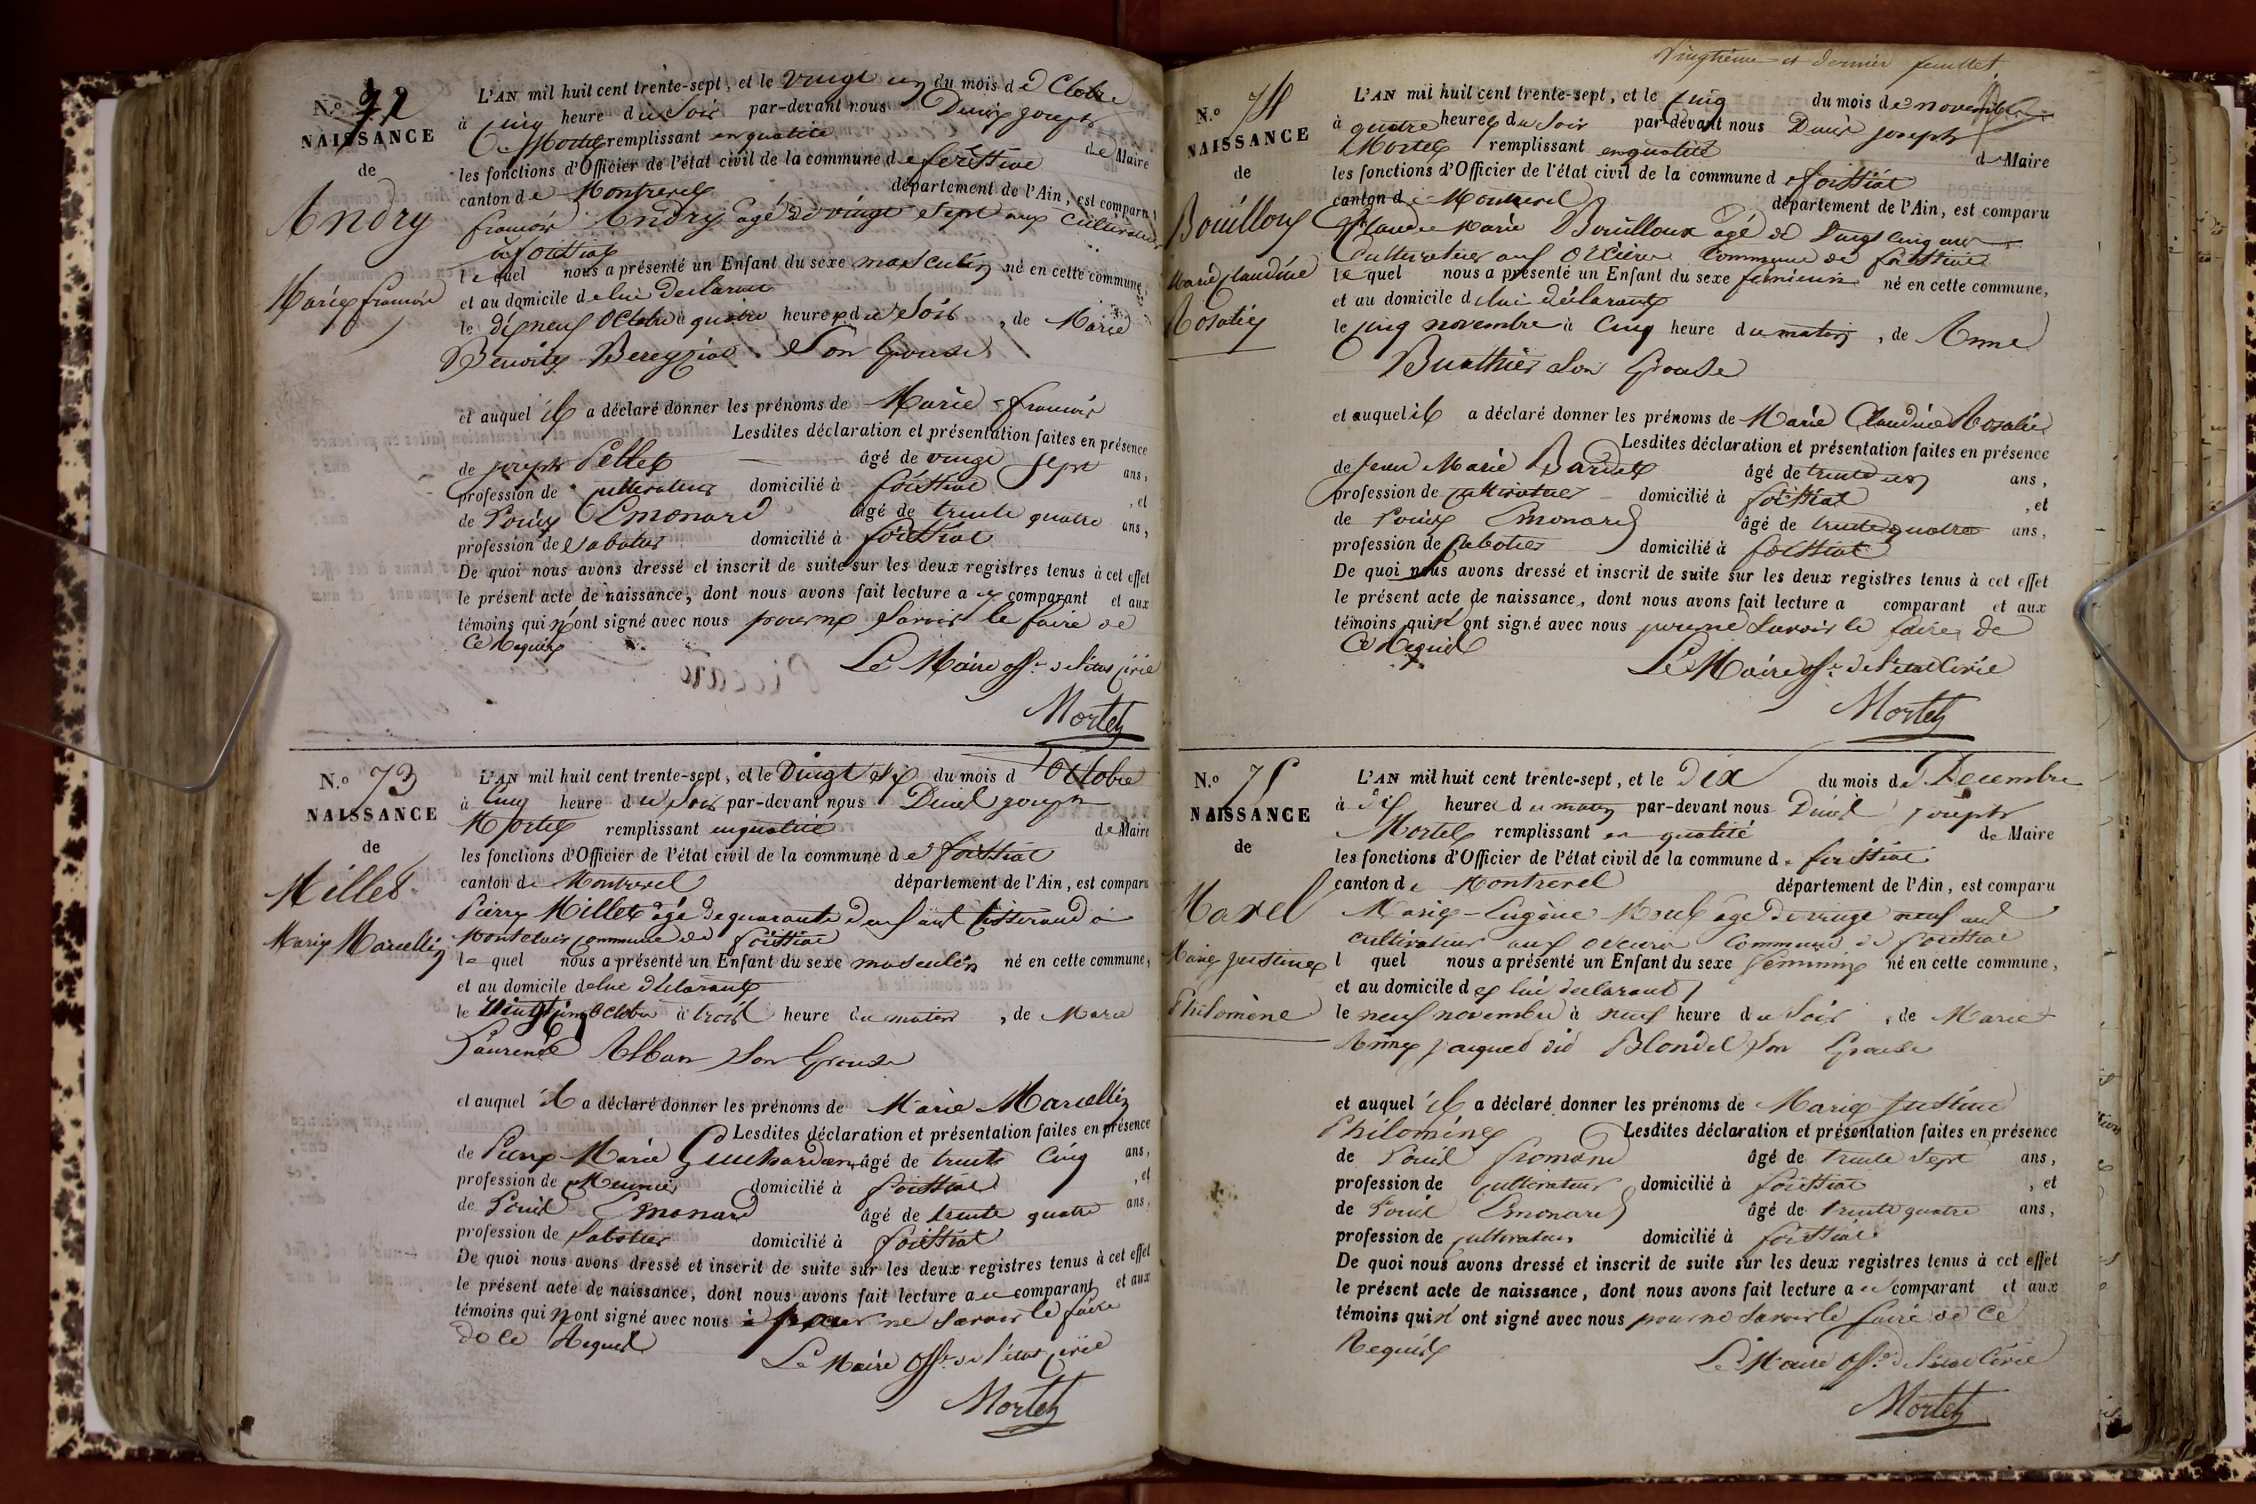 N.o 72
NAISSANCE
de
Andry
Marie françois
L'AN mil huit cent trente-sept, et le vingt un du mois d'octobre
à cinq heure du soir par-devant nous Denis joseph
Mortel remplissant en qualité de Maire
les fonctions d'Officier de l'état civil de la commune de foissiat
canton de Montrevel département de l'Ain, est comparu
françois Andry agé de vingt sept ans cultivateur
à foissiat
lequel nous a présenté un Enfant du sexe masculin né en cette commune,
et au domicile de lui declarant
le dix neuf octobre à quatre heures du soir, de Marie
Benoite Bereyziat son Epouse
et auquel il a déclaré donner les prénoms de Marie-françois
Lesdites déclaration et présentation faites en présence
de joseph Pellet âgé de vingt sept ans,
profession de cultivateur domicilié à foissiat, et
de Louis Emonard âgé de trente quatre ans,
profession de sabotier domicilié à foissiat
De quoi nous avons dressé et inscrit de suite sur les deux registres tenus à cet effet
le présent acte de naissance, dont nous avons fait lecture au comparant et aux
témoins qui n'ont signé avec nous pour ne savoir le faire de
ce Requis
Le Maire off. de l'état civil
Mortel
N.o 73
NAISSANCE
de
Millet
Marie Marcellin
L'AN mil huit cent trente-sept, et le vingt six du mois d'octobre
à cinq heure du soir par-devant nous Denis joseph
Mortel remplissant en qualité de Maire
les fonctions d'Officier de l'état civil de la commune de foissiat
canton de Montrevel département de l'Ain, est comparu
Pierre Millet âgé de quarante deux ans tisserand à
Montclair commune de foissiat
lequel nous a présenté un Enfant du sexe masculin né en cette commune,
et au domicile de lui déclarant
le vingt cinq octobre à trois heure du matin, de Marie
Laurence Alban son Epouse
et auquel il a déclaré donner les prénoms de Marie Marcellin
Lesdites déclaration et présentation faites en présence
de Pierre Marie Guichardan âgé de trente cinq ans,
profession de Meunier domicilié à foissiat, et
de Louis Emonard âgé de trente quatre ans,
profession de sabotier domicilié à foissiat
De quoi nous avons dressé et inscrit de suite sur les deux registres tenus à cet effet
le présent acte de naissance, dont nous avons fait lecture au comparant et aux
témoins qui n'ont signé avec nous pour ne savoir le faire
de ce Requis
Le Maire off. de l'état civil
Mortel
Vingtième et dernier feuillet
N.o 74
NAISSANCE
de
Bouilloux
Marie Claudine
Rosalie
L'AN mil huit cent trente-sept, et le cinq du mois de novembre
à quatre heures du soir par-devant nous Denis joseph
Mortel remplissant en qualité de Maire
les fonctions d'Officier de l'état civil de la commune de foissiat
canton de Montrevel département de l'Ain, est comparu
Claude Marie Bouilloux âgé de vingt cinq ans
cultivateur aux Orcières commune de foissiat
lequel nous a présenté un Enfant du sexe féminin né en cette commune,
et au domicile de lui déclarant
le cinq novembre à cinq heure du matin, de Anne
Buathier son Epouse
et auquel il a déclaré donner les prénoms de Marie Claudine Rosalie
Lesdites déclaration et présentation faites en présence
de Jean Marie âgé de trente un ans,
profession de cultivateur domicilié à foissiat, et
de Louis Emonard âgé de trente quatre ans,
profession de sabotier domicilié à foissiat
De quoi nous avons dressé et inscrit de suite sur les deux registres tenus à cet effet
le présent acte de naissance, dont nous avons fait lecture a comparant et aux
témoins qui n'ont signé avec nous pour ne savoir le faire de
ce Requis
Le Maire off. de l'état civil
Mortel
N.o 75
NAISSANCE
de
Morel
Marie justine
Philomène
L'AN mil huit cent trente-sept, et le Dix du mois de Decembre
à dix heures du matin par-devant nous Denis joseph
Mortel remplissant en qualité de Maire
les fonctions d'Officier de l'état civil de la commune de foissiat
canton de Montrevel département de l'Ain, est comparu
Marie-Eugène Morel âgé de vingt neuf ans
cultivateur aux commune de foissiat
lequel nous a présenté un Enfant du sexe féminin né en cette commune,
et au domicile de lui declarant
le neuf novembre à neuf heure du soir, de Marie
Anne jacquet dit Blondel son Epouse
et auquel il a déclaré donner les prénoms de Marie justine
Philomène Lesdites déclaration et présentation faites en présence
de Louis fromond âgé de trente sept ans,
profession de cultivateur domicilié à foissiat, et
de Louis Emonard âgé de trente quatre ans,
profession de cultivateur domicilié à foissiat
De quoi nous avons dressé et inscrit de suite sur les deux registres tenus à cet effet
le présent acte de naissance, dont nous avons fait lecture au comparant et aux
témoins qui n'ont signé avec nous pour ne savoir le faire de ce
Requis
Le Maire off. de l'état civil
Mortel